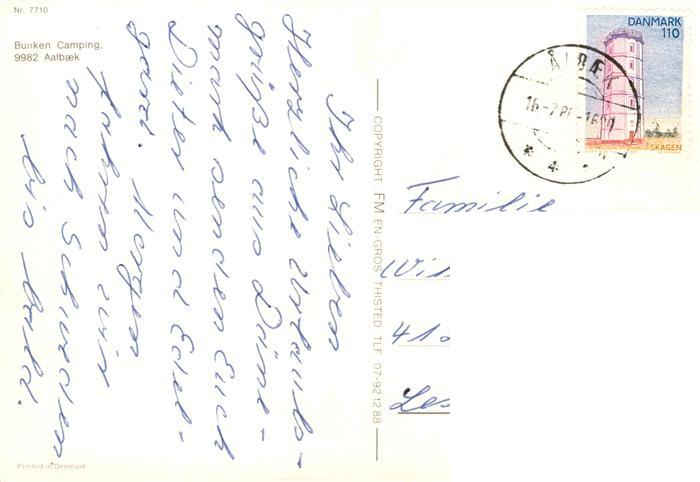 Nr. 7710
Bunken Camping,
9982 Aalbæk
Ihr Lieben
Herzliche Urlaubs-
grüße aus Däne-
mark senden Euch
Dieter und Edel-
gard. Morgen
fahren wir
nach Schweden
bis bald.
Printed in Denmark
COPYRIGHT FM EN-GROS THISTED TLF 07-921288
DANMARK
110
SKAGEN
ÅLBÆK
Familie